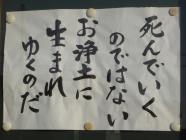 死んでいく
のではない
お浄土に
生まれ
ゆくのだ